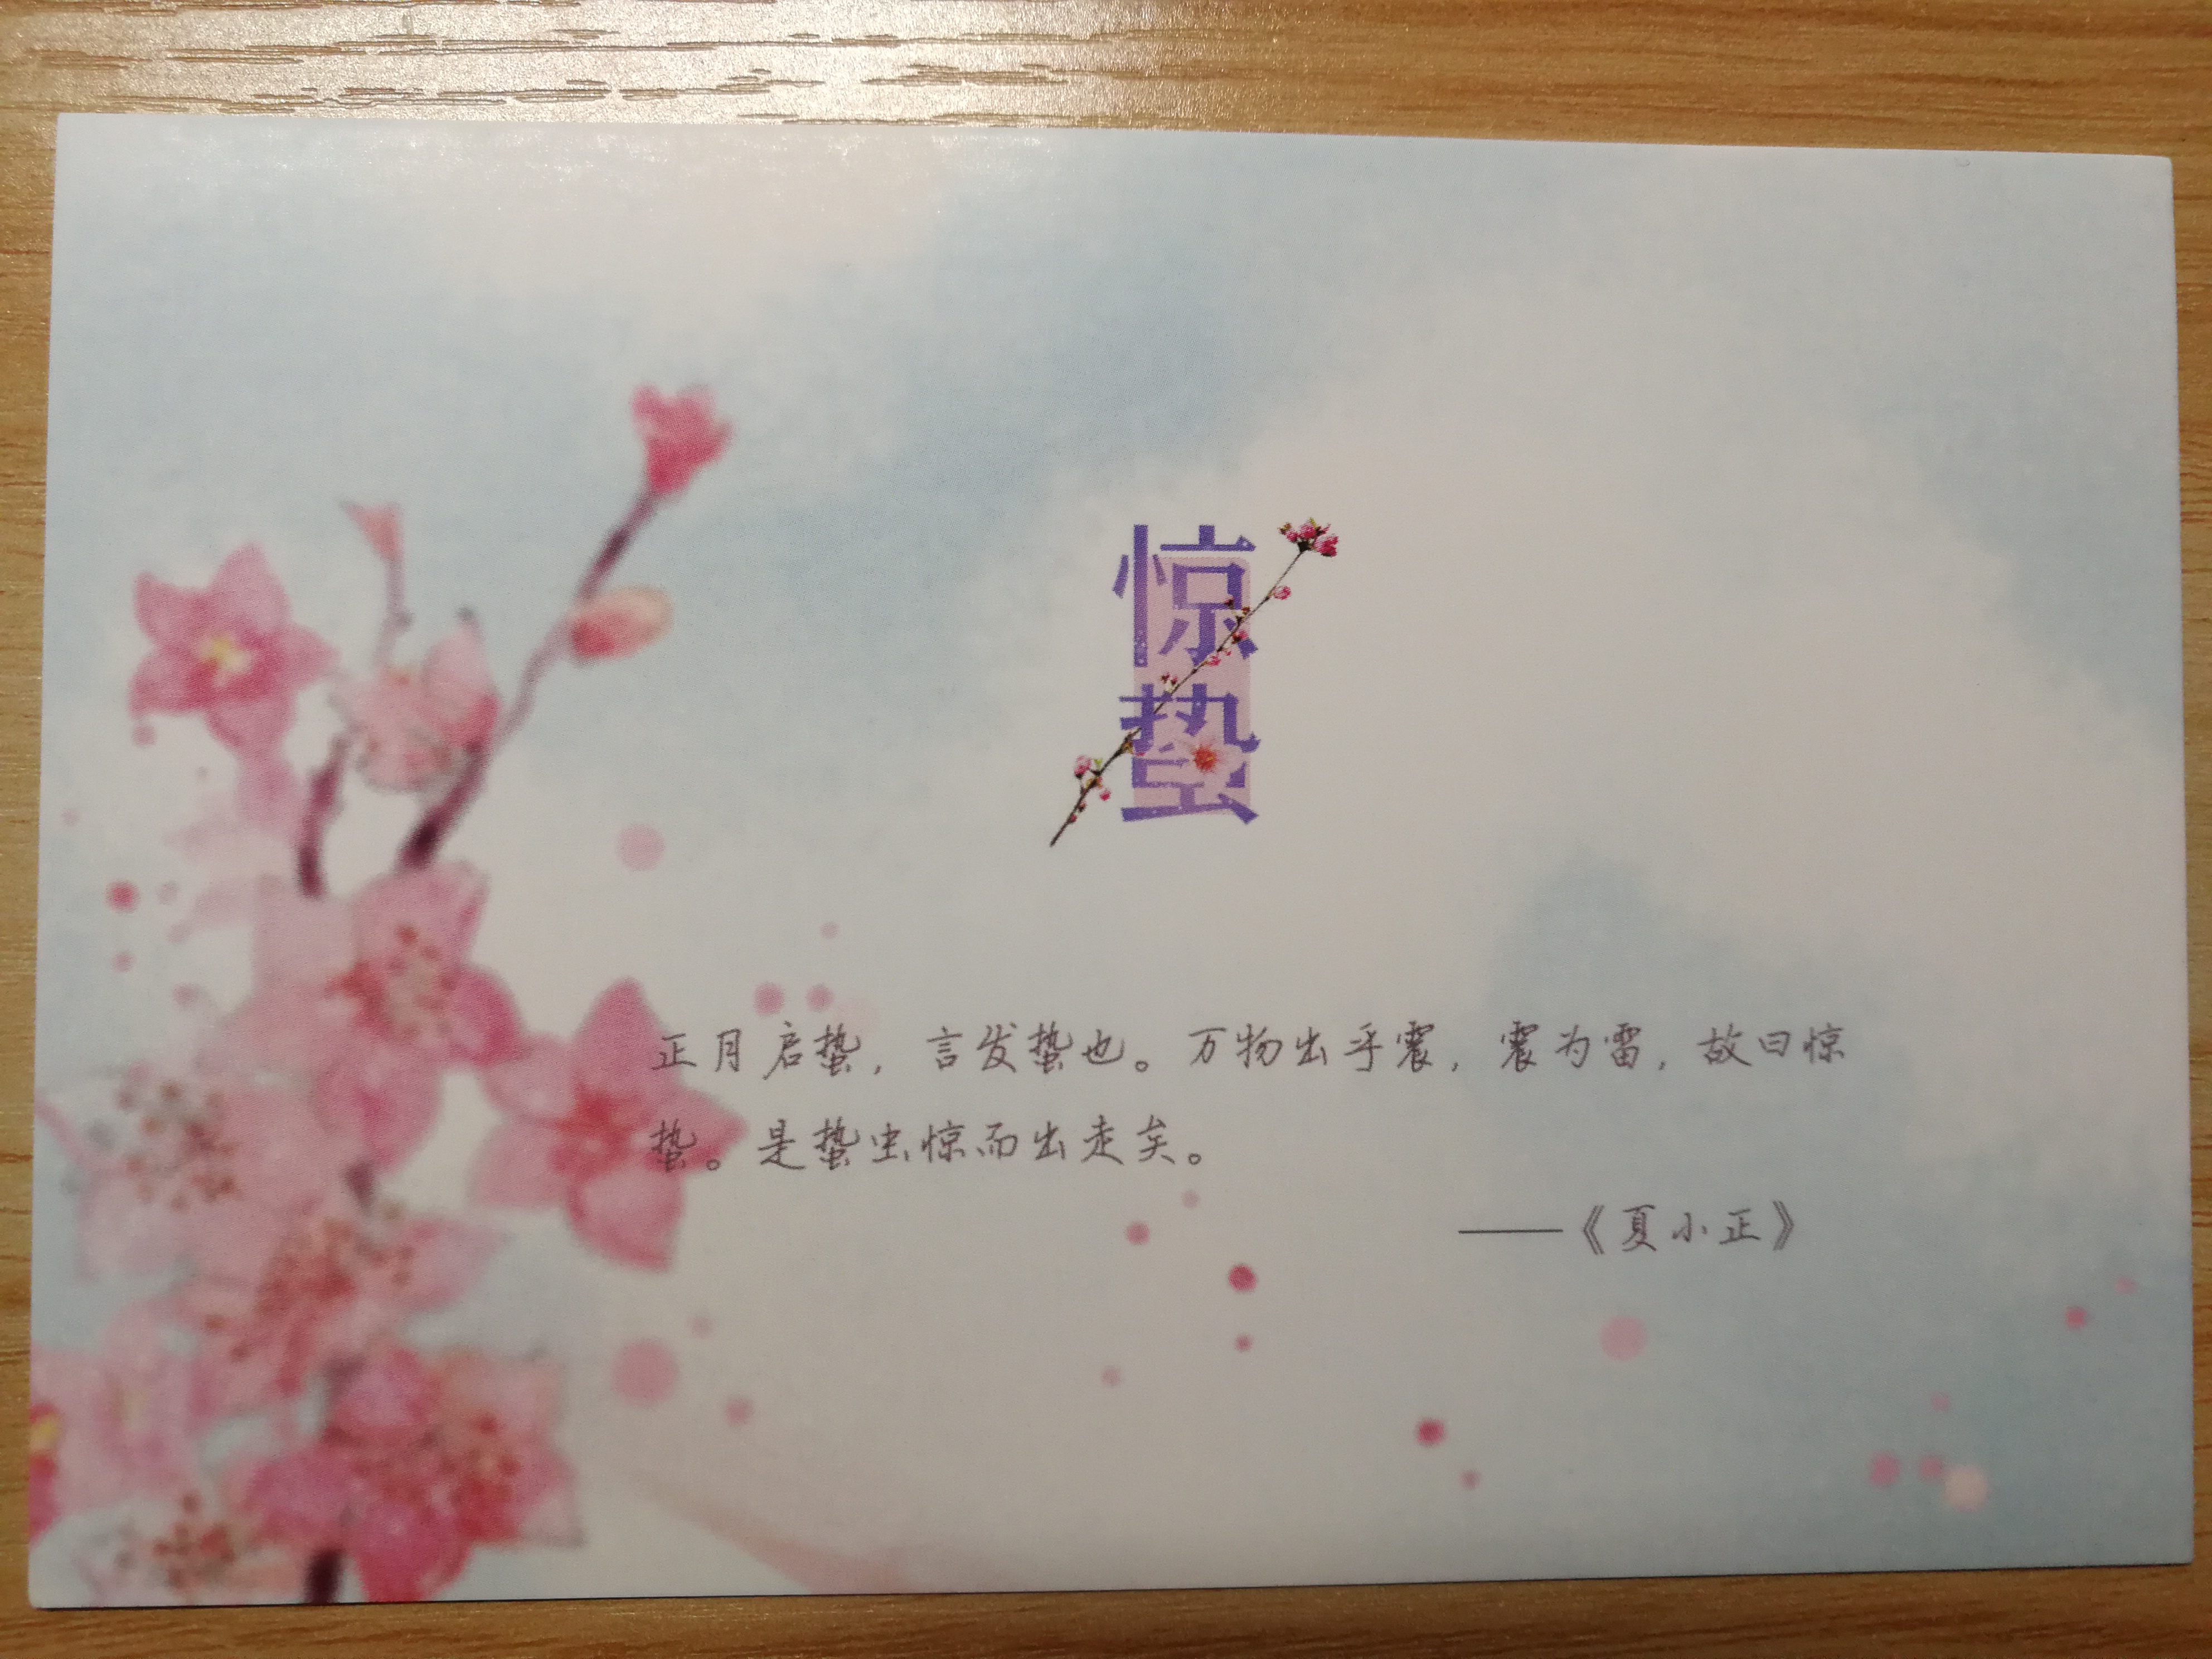 惊蛰
正月启蛰，言发蛰也。万物出乎震，震为雷，故曰惊
蛰。是蛰虫惊而出走矣。
——《夏小正》